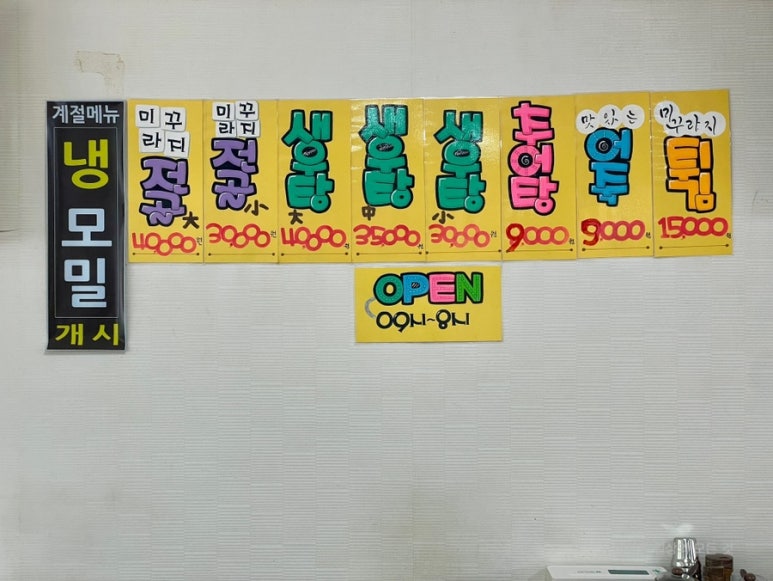 계절메뉴
냉
모
밀
개시
미꾸
라지
전골
大
40,000원
미꾸
라지
전골
小
30,000원
생우탕
大
40,000원
생우탕
中
35,000원
생우탕
小
30,000원
추어탕
9,000원
맛있는
9,000원
미꾸라지
튀김
15,000원
OPEN
09시~8시